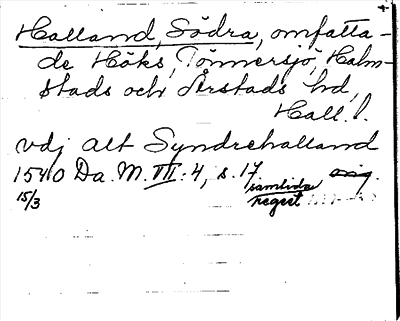 Halland, Södra, omfatta-
de Höks, Tönnersjö, Halm-
stads och Årstads hd,
Hall. l.
vdj alt Syndrehalland
1540 Da. M. III: 4, s. 17 orig.
15/3 samtida
regest